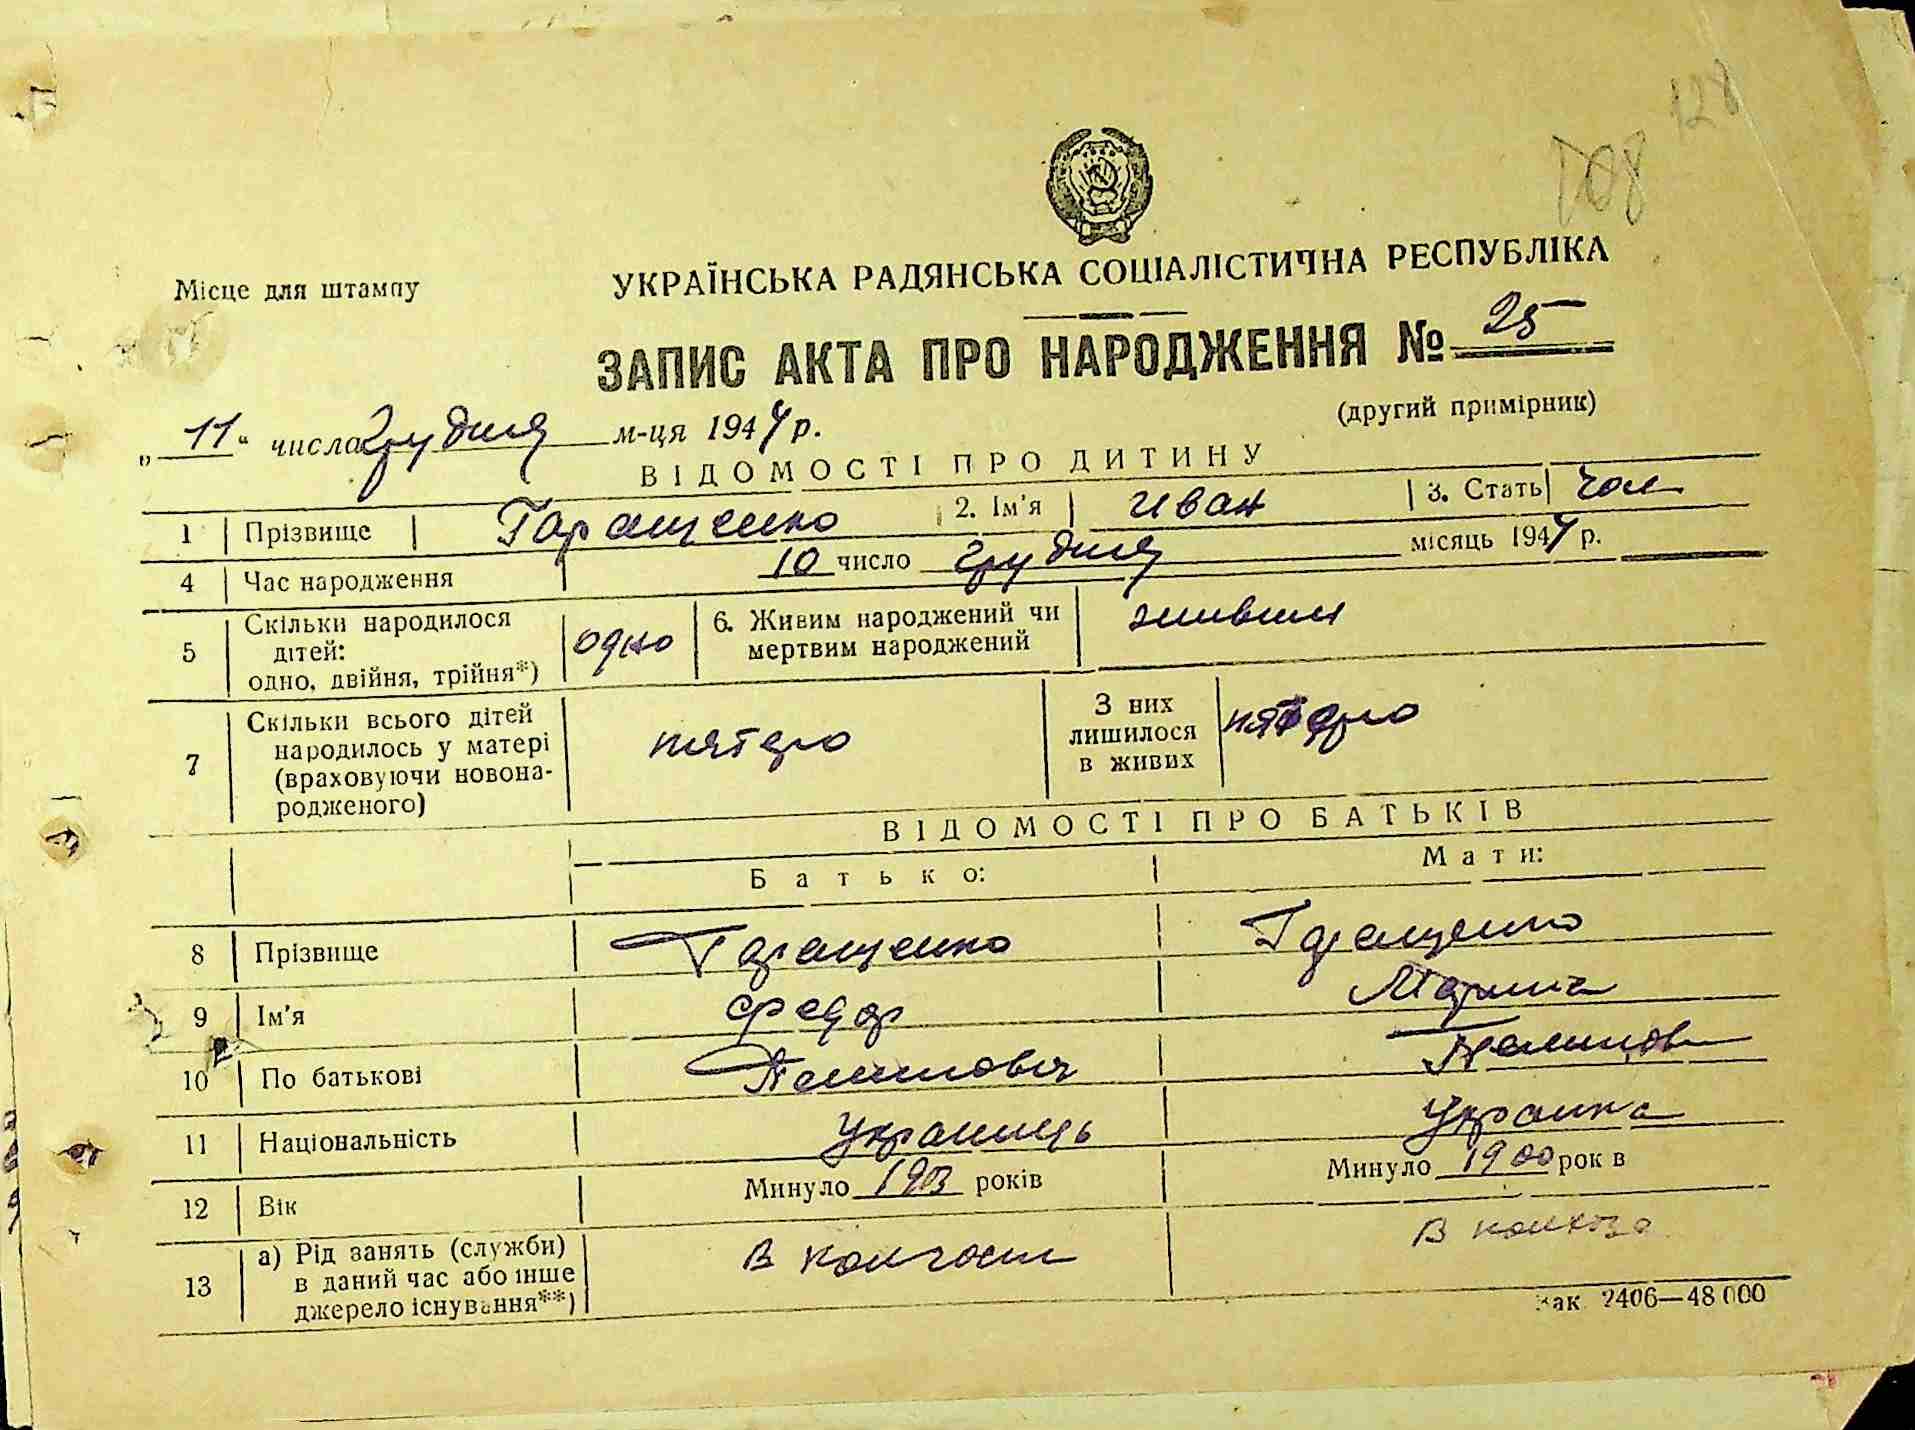 128
108
Місце для штампу
УКРАЇНСЬКА РАДЯНСЬКА СОЦІАЛІСТИЧНА РЕСПУБЛІКА
ЗАПИС АКТА ПРО НАРОДЖЕННЯ № 25
(другий примірник)
„11“ числа грудня м-ця 1944 р.
ВІДОМОСТІ ПРО ДИТИНУ
1 Прізвище Геращенко 2. Ім'я Иван 3. Стать чол
4 Час народження 10 число грудня місяць 1944 р.
5 Скільки народилося дітей: одно, двійня, трійня*) одно 6. Живим народжений чи мертвим народжений живим
7 Скільки всього дітей народилось у матері (враховуючи новона-родженого) пятеро З них лишилося в живих пятеро
ВІДОМОСТІ ПРО БАТЬКІВ
Батько: Мати:
8 Прізвище Геращенко Геращенко
9 Ім'я Федор
10 По батькові
11 Національність Украинець Украинка
12 Вік Минуло 1903 років Минуло 1900 років
13 а) Рід занять (служби) в даний час або інше джерело існування**) В колгоспі В колхозе
Зак. 2406—48 000